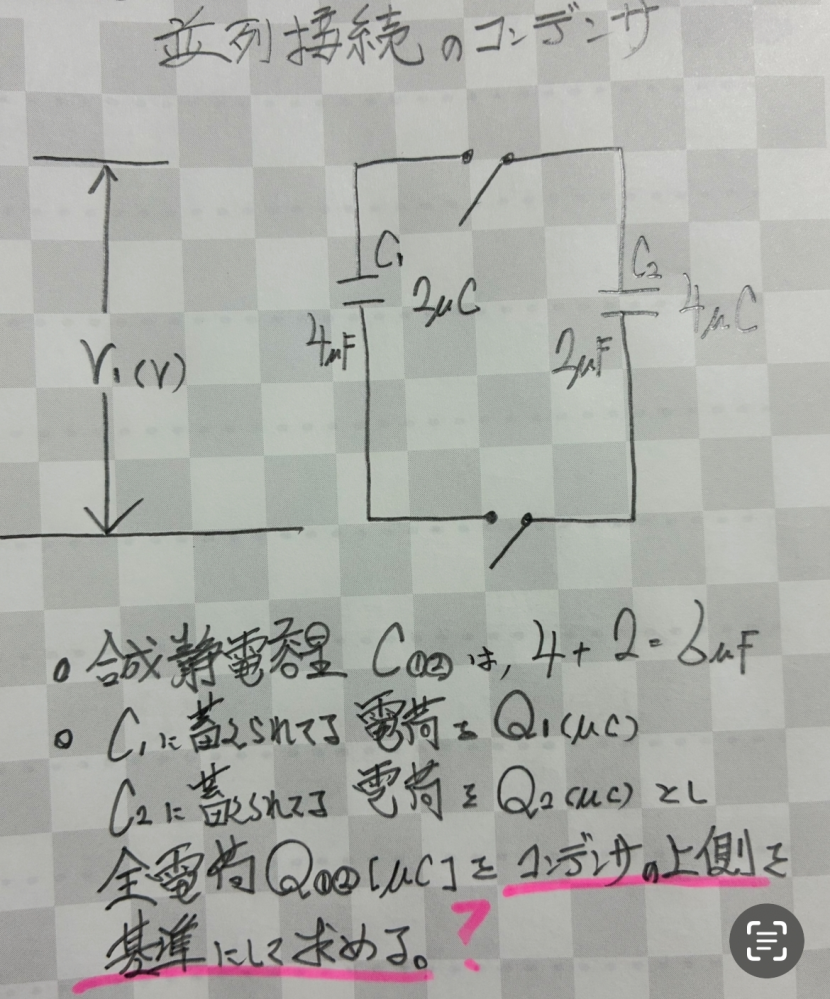 並列接続のコンデンサ
C₁
2μC
4μF
C₂
4μC
2μF
V₁(V)
• 合成静電容量 C①②は, 4+2=6μF
• C₁に蓄えられてる電荷を Q₁(μC)
C₂に蓄えられてる電荷を Q₂(μC)とし
全電荷Q①②[μC]をコンデンサの上側を
基準にして求める。?